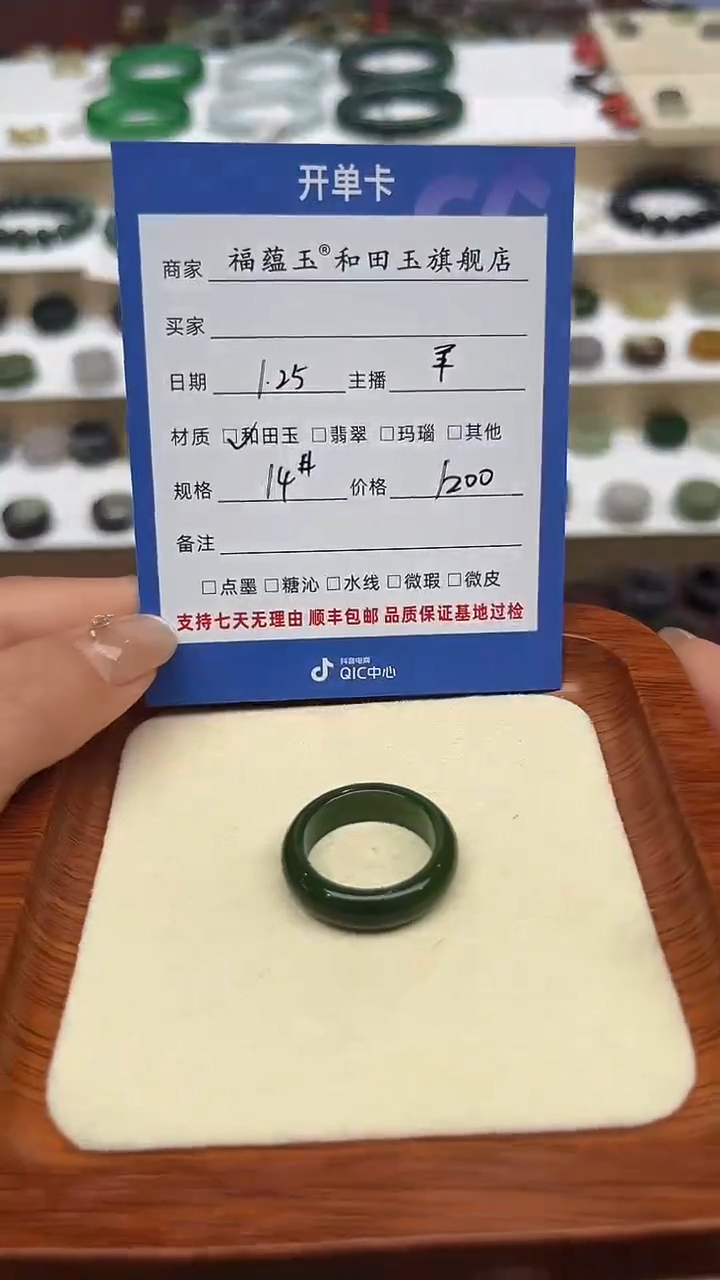 开单卡
商家 福蕴玉®和田玉旗舰店
买家
日期 1.25 主播 羊
材质 ☑和田玉 □翡翠 □玛瑙 □其他
规格 14# 价格 1200
备注
□点墨 □糖沁 □水线 □微瑕 □微皮
支持七天无理由 顺丰包邮 品质保证基地过检
抖音电商
QIC中心